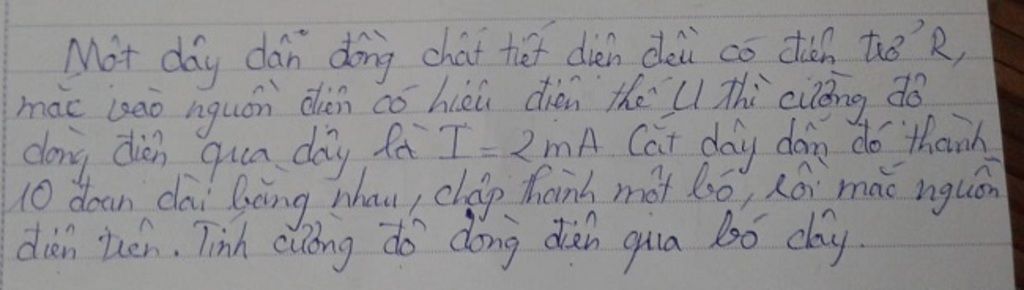 Một dây dẫn đồng chất tiết diện đều có điện trở R,
mắc vào nguồn điện có hiệu điện thế U thì cường độ
dòng điện qua dây là I = 2mA Cắt dây dẫn đó thành
10 đoạn dài bằng nhau, chập thành một bó, rồi mắc nguồn
điện trên. Tính cường độ dòng điện qua bó dây.